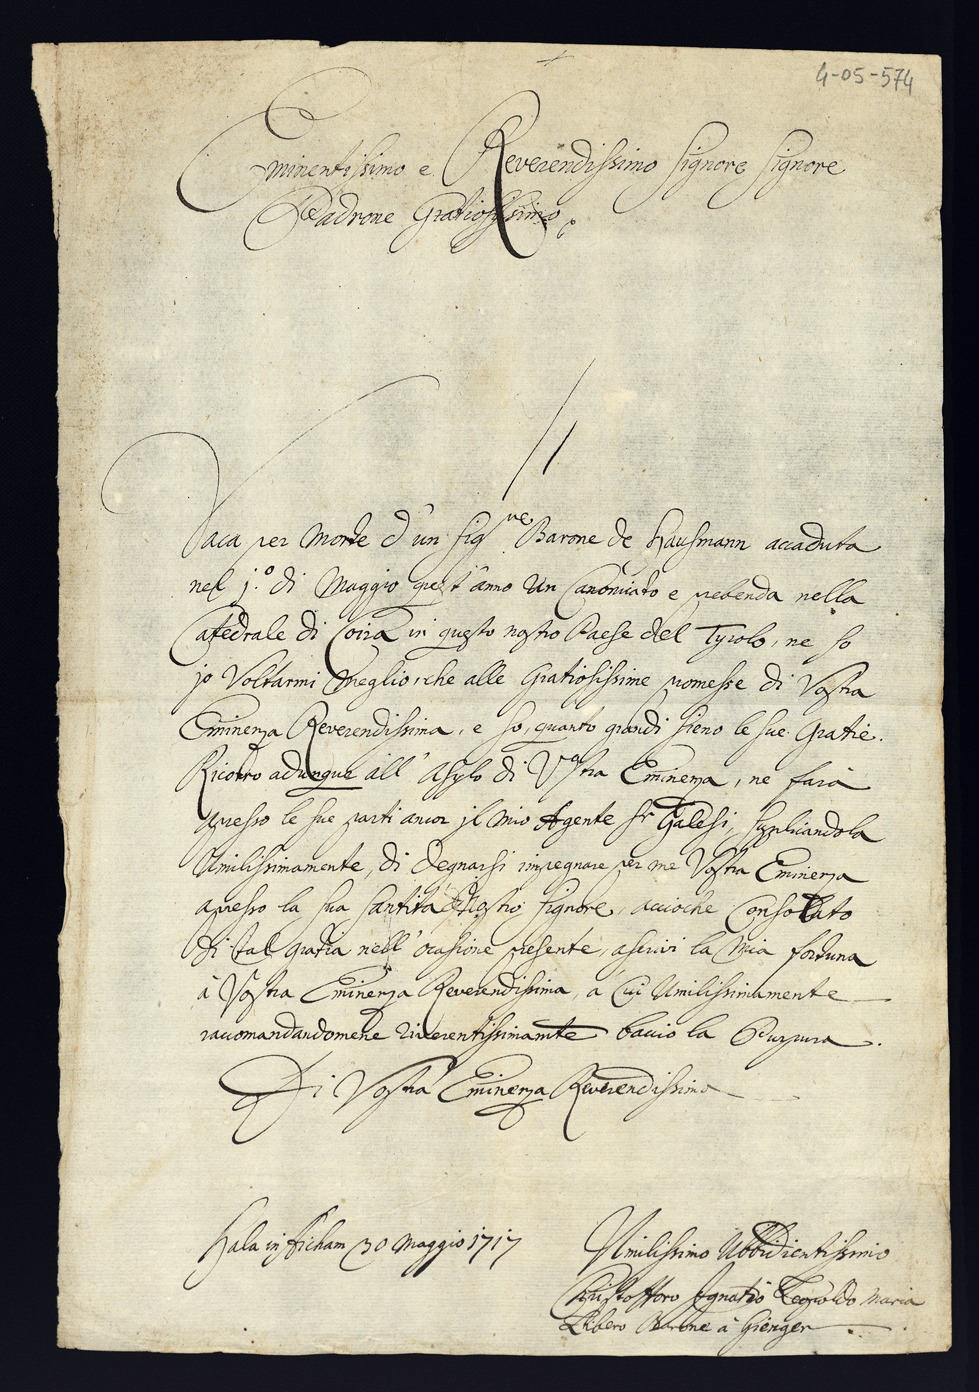 4-05-574
Eminentissimo e Reverendissimo Signore Signore
Padrone Gratiosissimo
Vaca per Morte d'un Sig.re Barone de Hausmann accaduta
nel j.o di Maggio quest'anno un Canonicato e prebenda nella
Catedrale di Coira in questo nostro Paese del Tyrolo, ne so
jo Voltarmi meglio, che alle Gratiosissime promesse di Vostra
Eminenza Reverendissima, e so, quanto grandi sieno le sue Gratie.
Ricorro adunque all' Asylo di Vostra Eminenza, ne farà
apresso le sue parti ancor jl mio Agente Sr Galesi, Suplicandola
Umilissimamente, di degnarsi impegnare per me Vostra Eminenza
apresso la sua Santità Nostro Signore, accioche Consolato
di tal gratia nell' ocasione presente, ascrivi la mia fortuna
à Vostra Eminenza Reverendissima, à Cui Umilissimamente
racomandandomene riverentissimamte baccio la Purpura.
Di Vostra Eminenza Reverendissima
Hala in 30 Maggio 1717
Umilissimo Ubbidientissimo
Christofforo Ignatio Leopoldo Maria
Libero Barone à Gienger